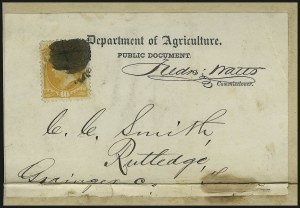 Department of Agriculture.
PUBLIC DOCUMENT.
Fredk: Watts
Commissioner.
C. C. Smith,
Rutledge,
Grainger Co.